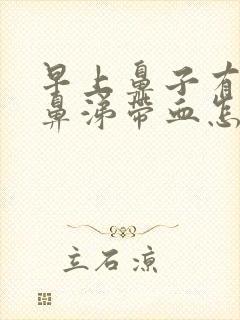 早上鼻子有
鼻涕带血怎
立石凉